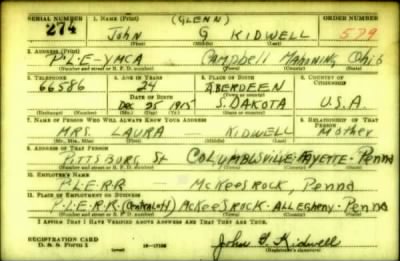 SERIAL NUMBER 1. NAME (Print) (GLENN) ORDER NUMBER
274 John G KIDWELL 579
(First) (Middle) (Last)
2. ADDRESS (Print)
P-L-E-YMCA Campbell Mahoning Ohio
(Number and street or R. F. D. number) (Town) (County) (State)
3. TELEPHONE 4. AGE IN YEARS 5. PLACE OF BIRTH 6. COUNTRY OF CITIZENSHIP
66586 24 ABERDEEN
DATE OF BIRTH (Town or county)
Dec 25 1915 S. DAKOTA U.S.A.
(Mo.) (Day) (Yr.) (State or country)
7. NAME OF PERSON WHO WILL ALWAYS KNOW YOUR ADDRESS 8. RELATIONSHIP OF THAT PERSON
MRS. LAURA — KIDWELL Mother
(Mr., Mrs., Miss) (First) (Middle) (Last)
9. ADDRESS OF THAT PERSON
PITTSBURG St FAYETTE - Penna
(Number and street or R. F. D. number) (Town) (County) (State)
10. EMPLOYER'S NAME
P.L.E.R.R. — McKEESROCK, Penna
11. PLACE OF EMPLOYMENT OR BUSINESS
P-L-E-R-R- McKEESROCK-ALLEGHENY-Penna
(Number and street or R. F. D. number) (Town) (County) (State)
I AFFIRM THAT I HAVE VERIFIED ABOVE ANSWERS AND THAT THEY ARE TRUE.
REGISTRATION CARD
D. S. S. Form 1 (over) 16—17105 John G. Kidwell
(Registrant's signature)